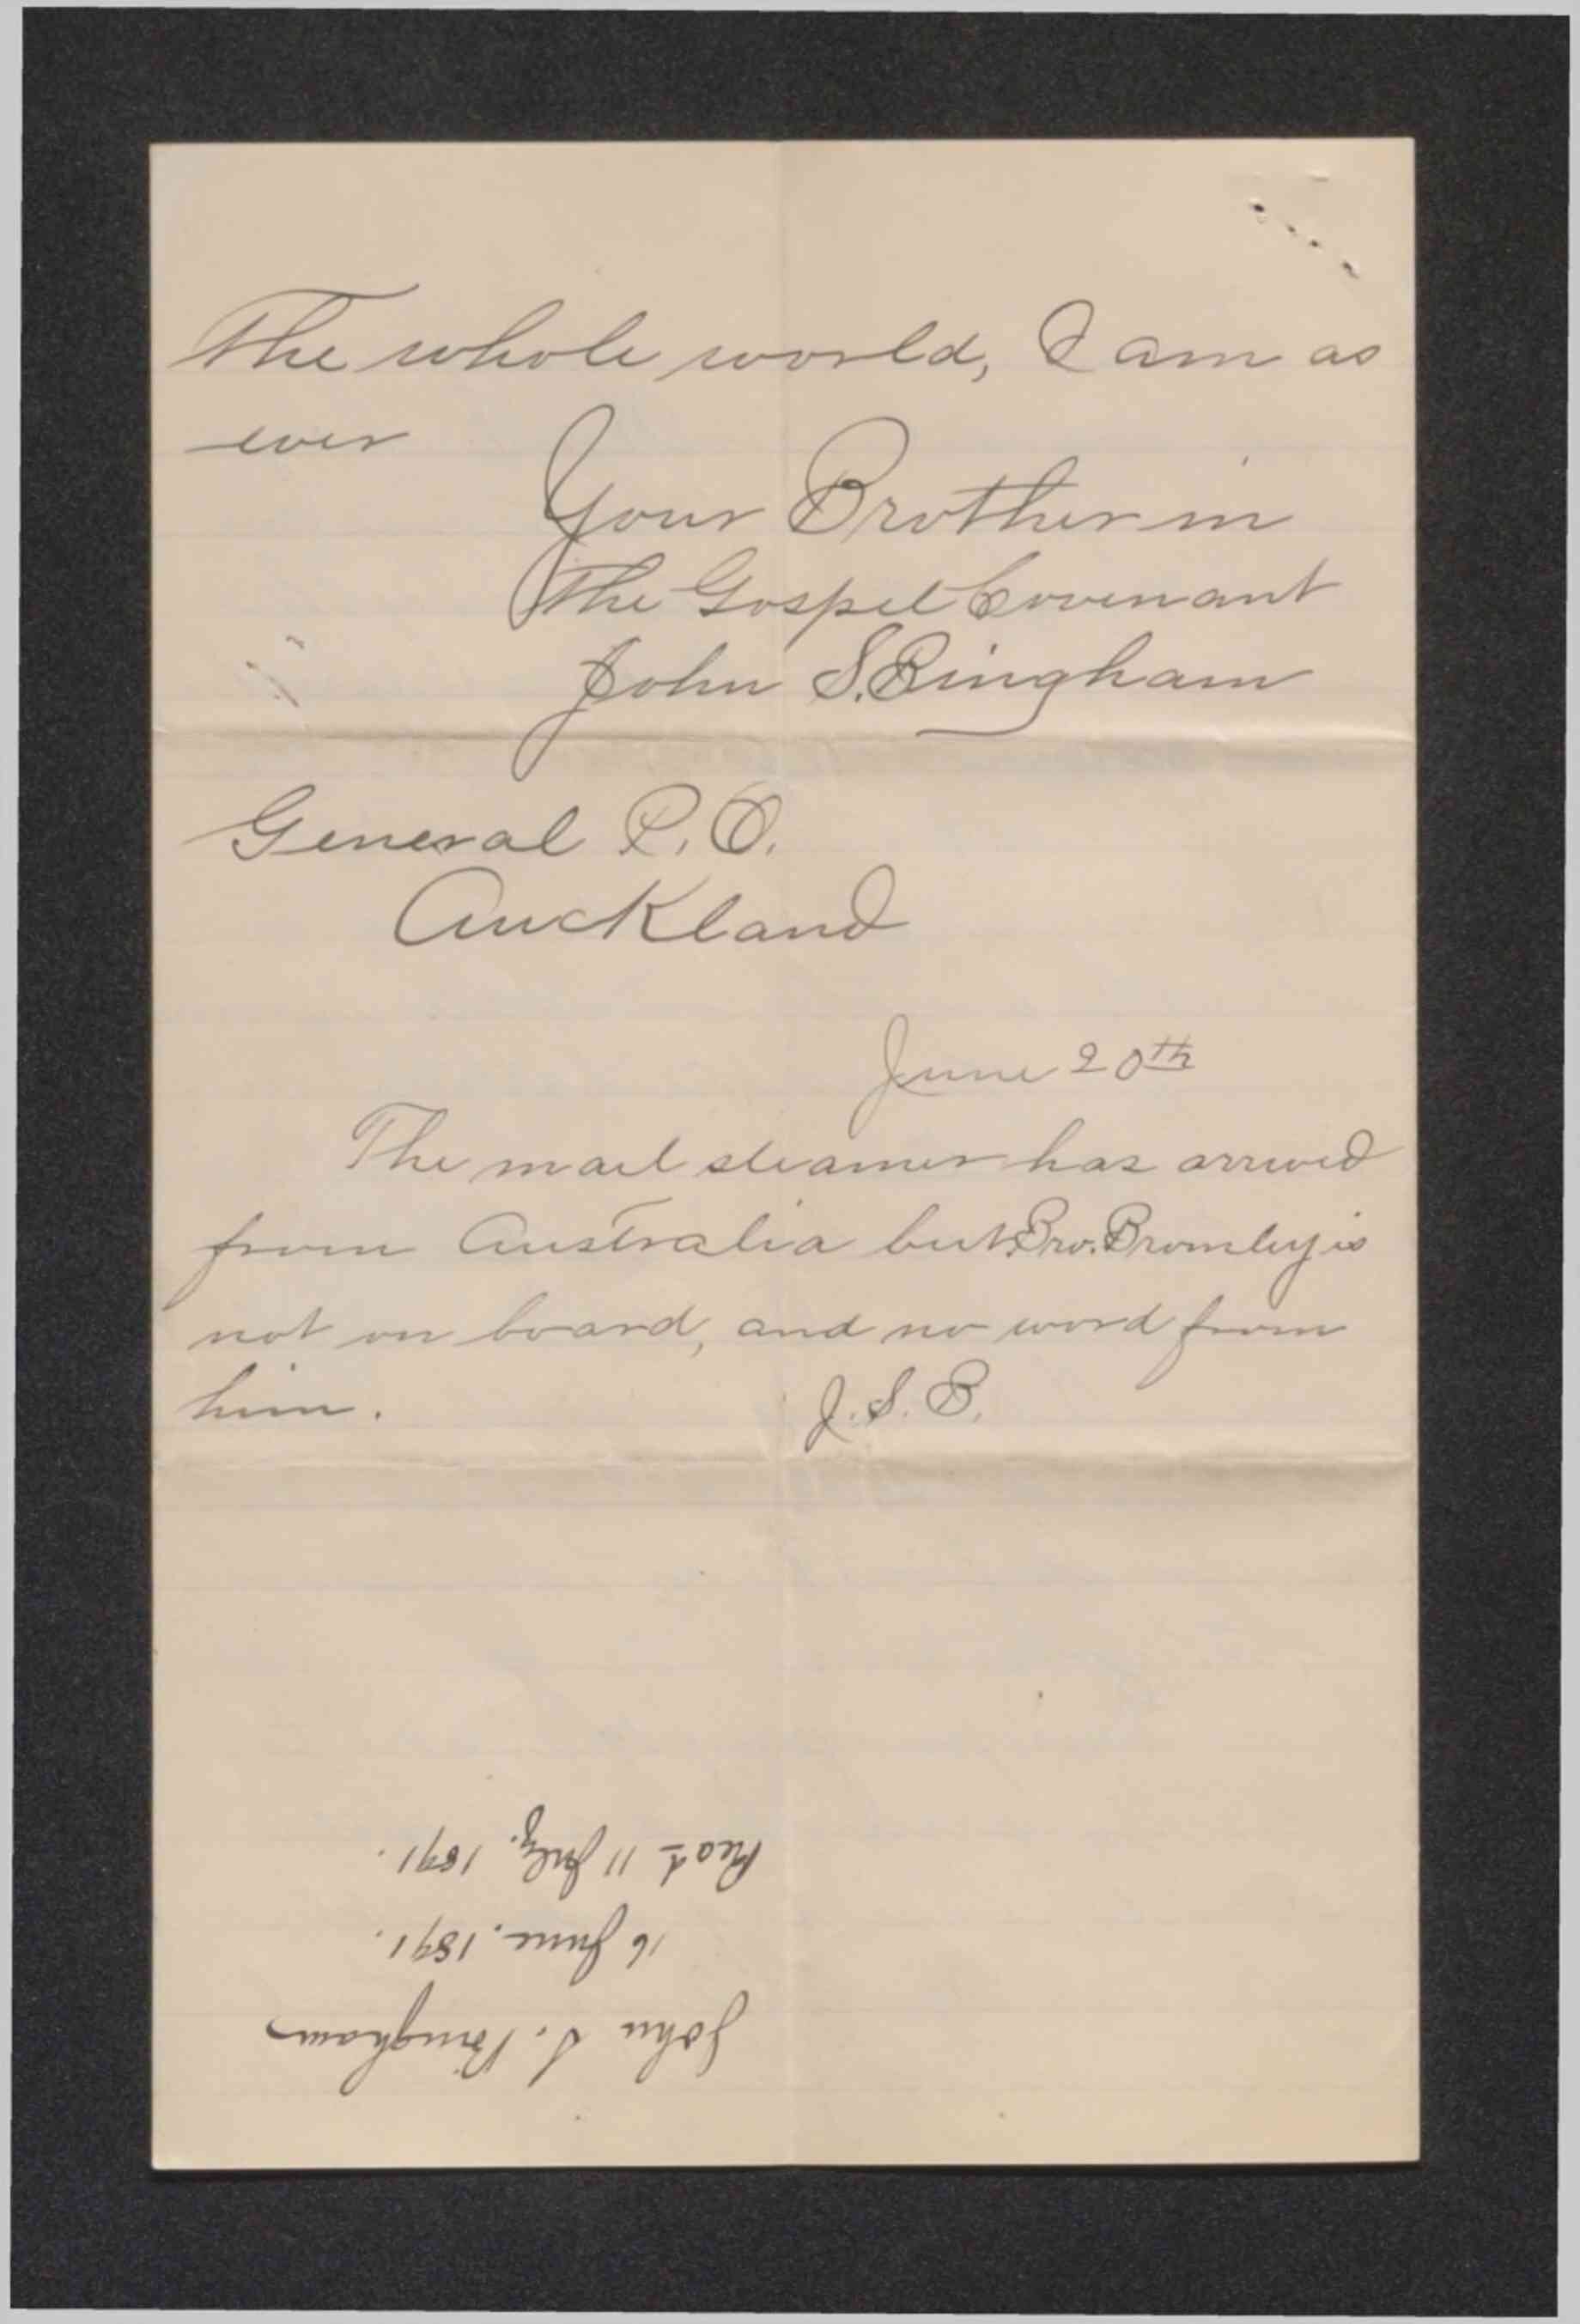 The whole world, I am as
ever
Your Brother in
The Gospel Covenant
John S. Bingham
General P.O.
Auckland
June 20th
The mail steamer has arrived
from Australia but Bro. Bromley is
not on board, and no word from
him. J. S. B.
John S. Bingham
16 June. 1891.
Recd 11 July. 1891.